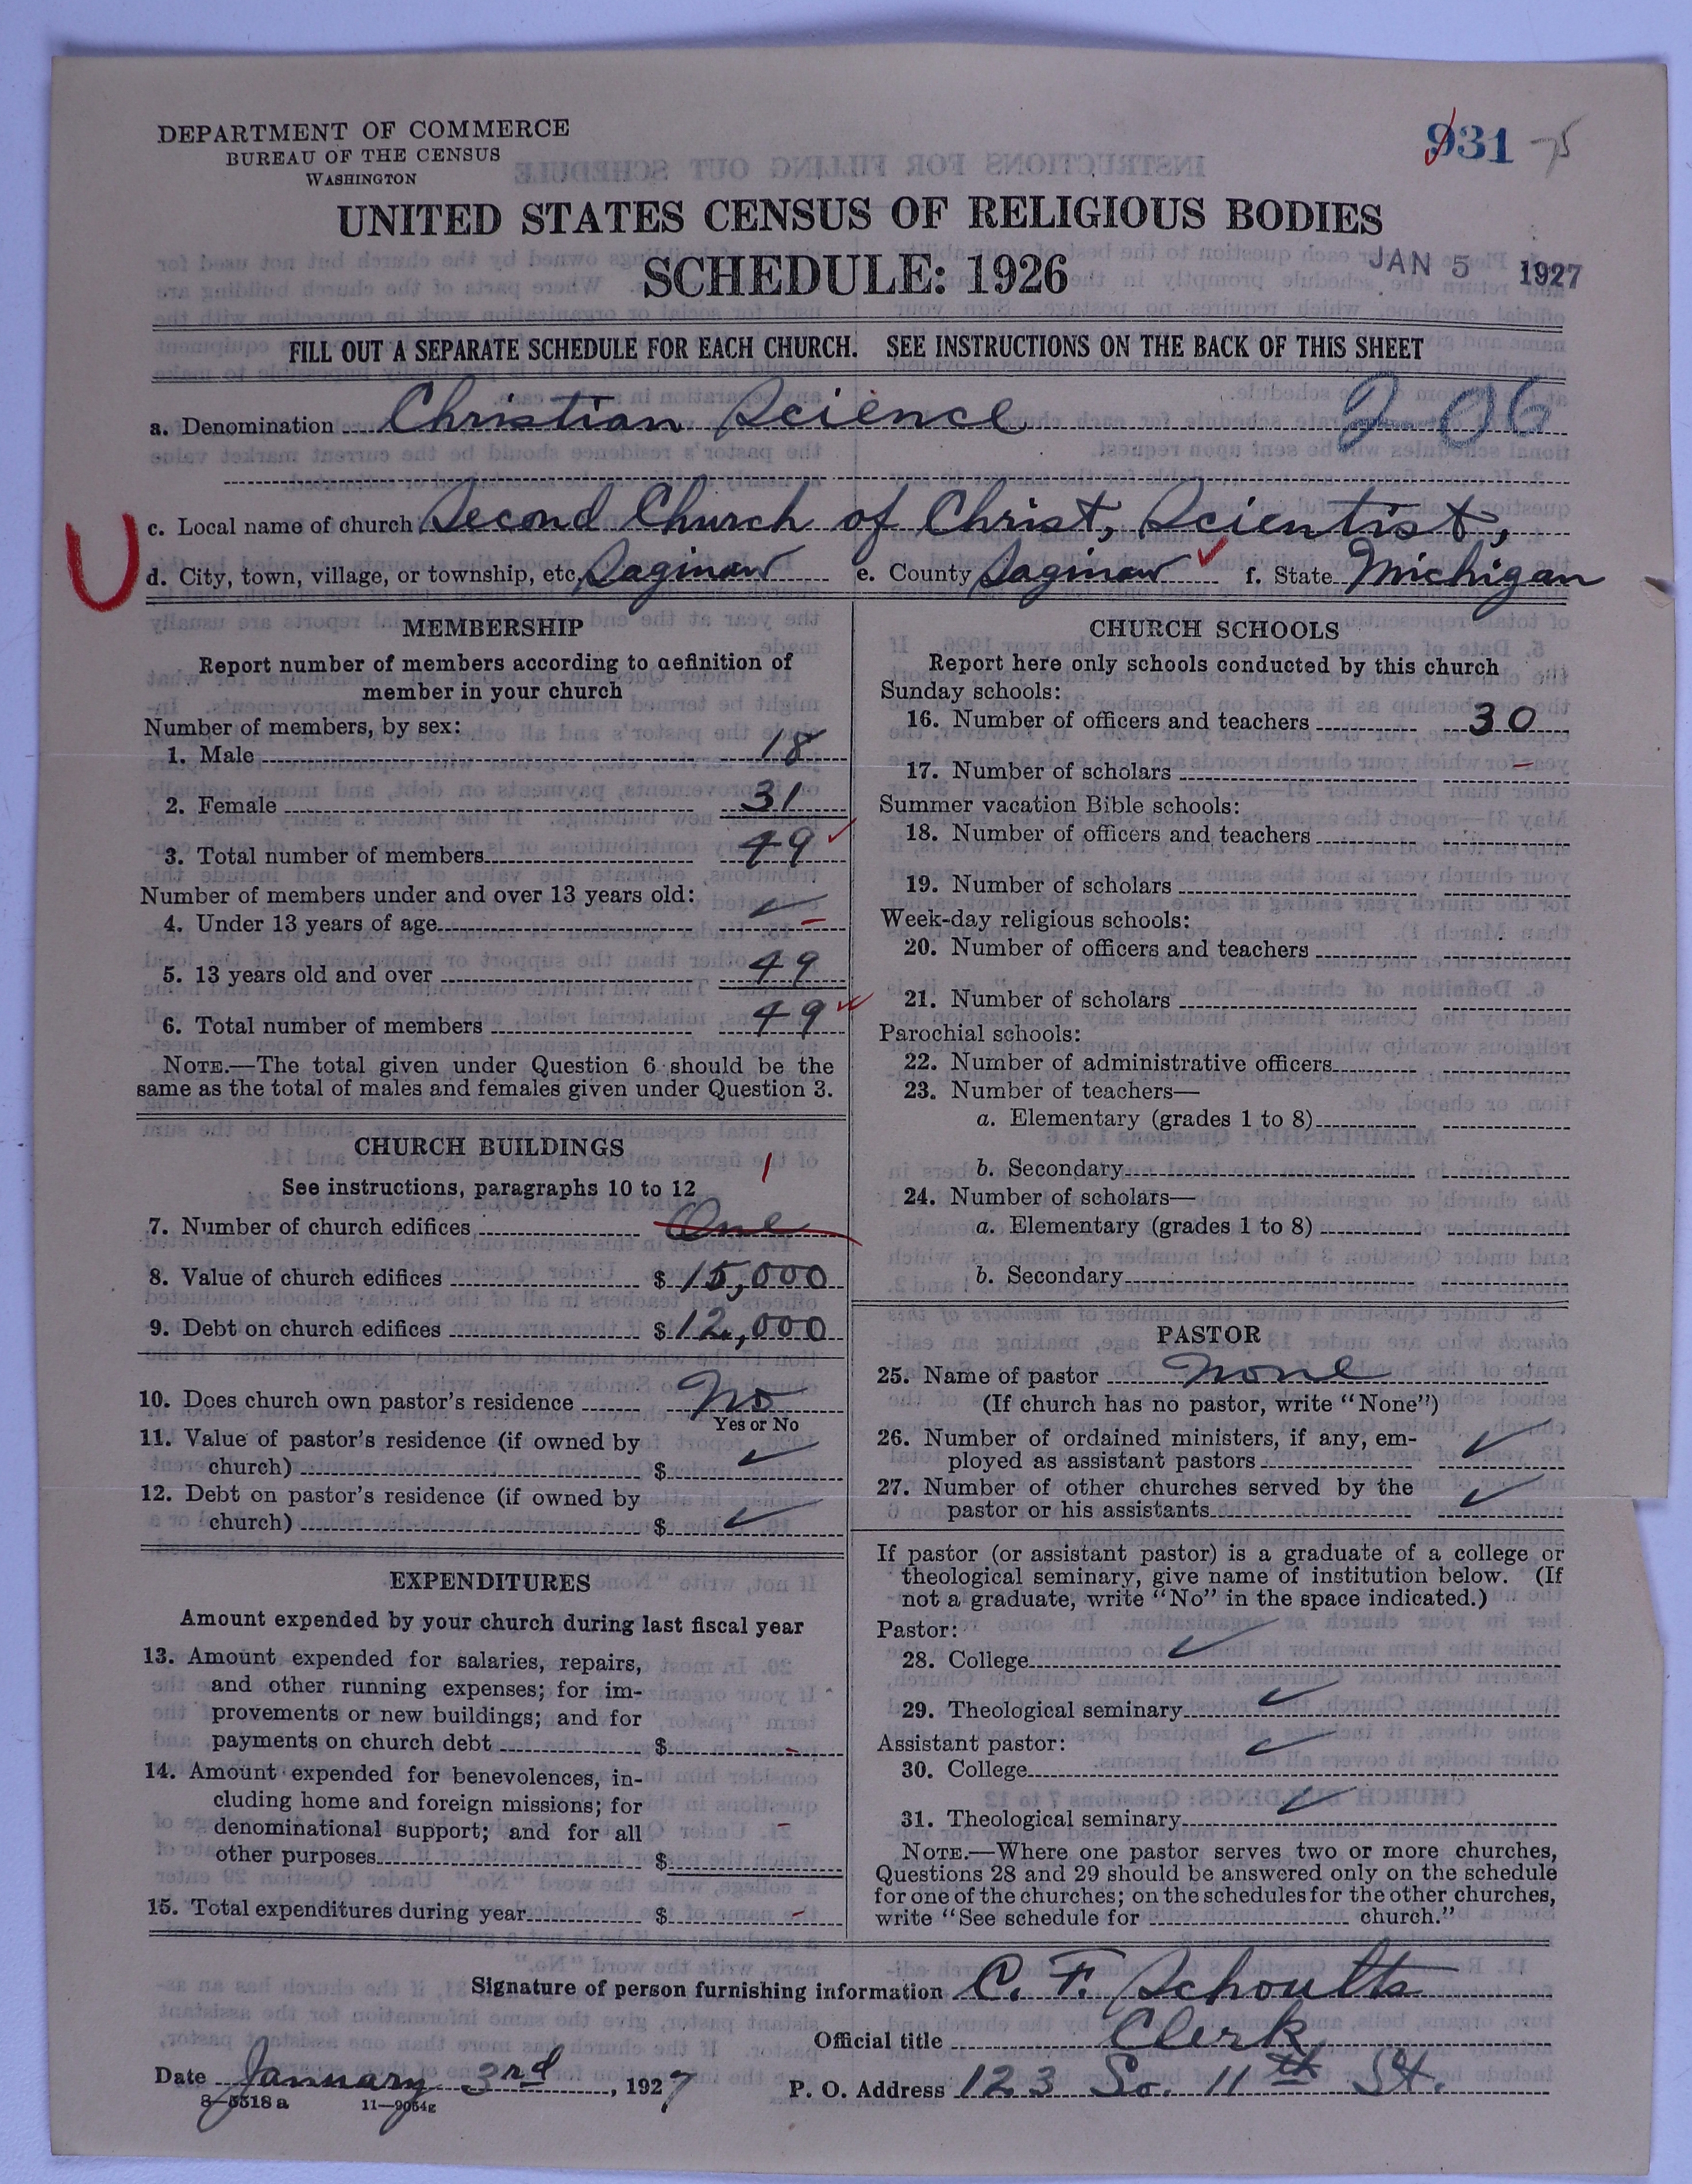 DEPARTMENT OF COMMERCE
BUREAU OF THE CENSUS
WASHINGTON
931 -75
UNITED STATES CENSUS OF RELIGIOUS BODIES
SCHEDULE: 1926
JAN 5 1927
FILL OUT A SEPARATE SCHEDULE FOR EACH CHURCH. SEE INSTRUCTIONS ON THE BACK OF THIS SHEET
a. Denomination Christian Science 2-06
c. Local name of church Second Church of Christ, Scientist,
U
d. City, town, village, or township, etc. Saginaw e. County Saginaw f. State Michigan
MEMBERSHIP
Report number of members according to definition of
member in your church
Number of members, by sex:
1. Male 18
2. Female 31
3. Total number of members 49
Number of members under and over 13 years old:
4. Under 13 years of age -
5. 13 years old and over 49
6. Total number of members 49
NOTE.—The total given under Question 6 should be the
same as the total of males and females given under Question 3.
CHURCH BUILDINGS
See instructions, paragraphs 10 to 12
1
7. Number of church edifices One
8. Value of church edifices $ 15,000
9. Debt on church edifices $ 12,000
10. Does church own pastor's residence No
Yes or No
11. Value of pastor's residence (if owned by
church) $
12. Debt on pastor's residence (if owned by
church) $
EXPENDITURES
Amount expended by your church during last fiscal year
13. Amount expended for salaries, repairs,
and other running expenses; for im-
provements or new buildings; and for
payments on church debt $ -
14. Amount expended for benevolences, in-
cluding home and foreign missions; for
denominational support; and for all
other purposes $ -
15. Total expenditures during year $ -
CHURCH SCHOOLS
Report here only schools conducted by this church
Sunday schools:
16. Number of officers and teachers 30
17. Number of scholars -
Summer vacation Bible schools:
18. Number of officers and teachers
19. Number of scholars
Week-day religious schools:
20. Number of officers and teachers
21. Number of scholars
Parochial schools:
22. Number of administrative officers
23. Number of teachers—
a. Elementary (grades 1 to 8)
b. Secondary
24. Number of scholars—
a. Elementary (grades 1 to 8)
b. Secondary
PASTOR
25. Name of pastor none
(If church has no pastor, write "None")
26. Number of ordained ministers, if any, em-
ployed as assistant pastors
27. Number of other churches served by the
pastor or his assistants
If pastor (or assistant pastor) is a graduate of a college or
theological seminary, give name of institution below. (If
not a graduate, write "No" in the space indicated.)
Pastor:
28. College
29. Theological seminary
Assistant pastor:
30. College
31. Theological seminary
NOTE.—Where one pastor serves two or more churches,
Questions 28 and 29 should be answered only on the schedule
for one of the churches; on the schedules for the other churches,
write "See schedule for church."
Signature of person furnishing information C. F. Schoults
Official title Clerk
Date January 3rd, 1927 P. O. Address 123 So. 11th St.
8—5518a 11—9054g